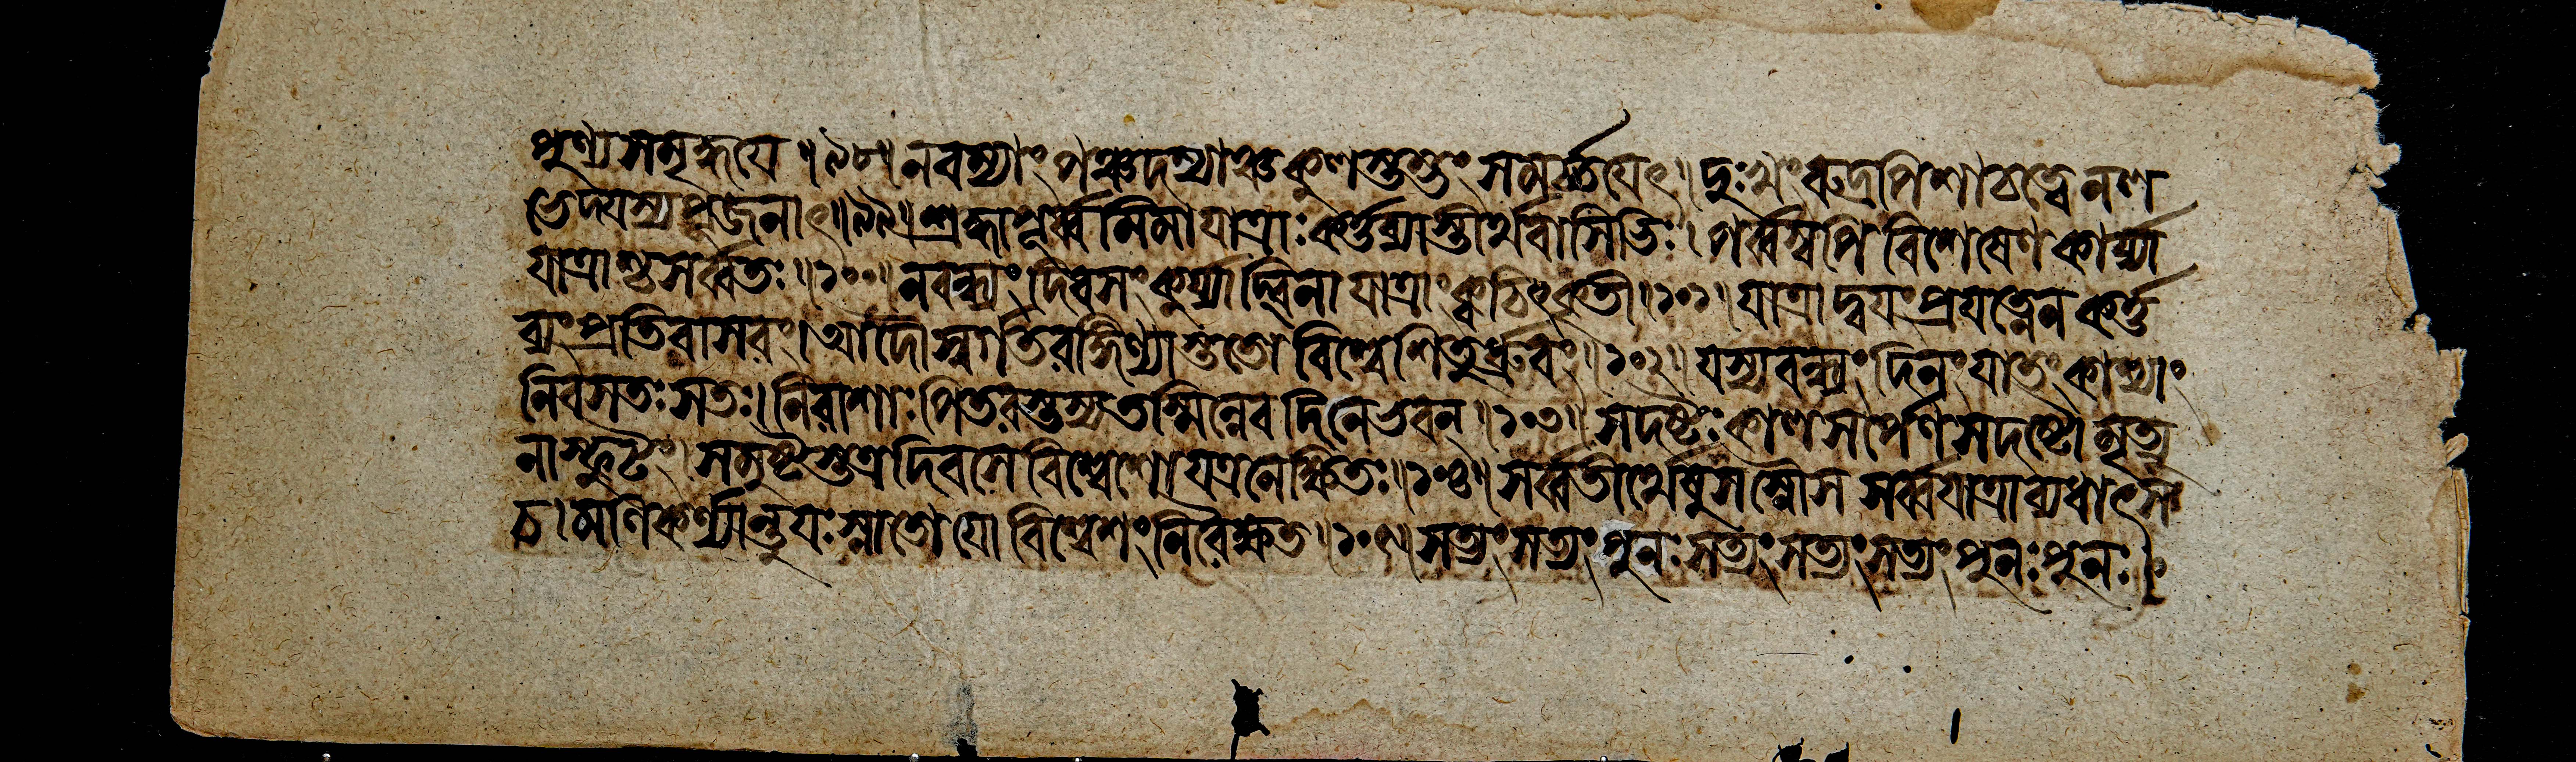 পুণ্যসমৃদ্ধয়ে ॥৯৮॥ নবম্যাং পঞ্চদশ্যাঞ্চ কুলস্তম্ভং সমর্চ্চয়েৎ। দুঃখং রুদ্রপিশাচত্বং ন ল
ভেদ্যস্য পূজনাৎ॥৯৯॥ শ্রদ্ধাপূর্ব্বমিমা যাত্রাঃ কর্ত্তব্যাস্তীর্থবাসিভিঃ। পর্ব্বস্বপি বিশেষেণ কার্য্যা
যাত্রাশ্চ সর্ব্বতঃ॥১০০॥ ন বন্ধ্যং দিবসং কুর্য্যাদ্বিনা যাত্রাং ক্বচিৎ কৃতী॥১০১॥ যাত্রাদ্বয়ং প্রযত্নেন কর্ত্ত
ব্যং প্রতিবাসরং। আদৌ স্বর্গতরঙ্গিণ্যাস্ততো বিশ্বেশিতুর্ধ্রুবং॥১০২॥ যস্য বন্ধ্যং দিনং যাতং কাশ্যাং
নিবসতঃ সতঃ। নিরাশাঃ পিতরস্তস্য তস্মিন্নেব দিনেভবন্॥১০৩॥ স দষ্টঃ কালসর্পেণ স দৃষ্টো মৃত্যু
না স্ফুটং। স মুষ্টস্তত্র দিবসে বিশ্বেশো যত্র নেক্ষিতঃ॥১০৪॥ সর্ব্বতীর্থেষু সস্নৌ স সর্ব্বযাত্রা ব্যধাৎ স
চ। মণিকর্ণ্যান্তু যঃ স্নাতো যো বিশ্বেশং নিরৈক্ষত॥১০৫॥ সত্যং সত্যং পুনঃ সত্যং সত্যং সত্যং পুনঃ পুনঃ।